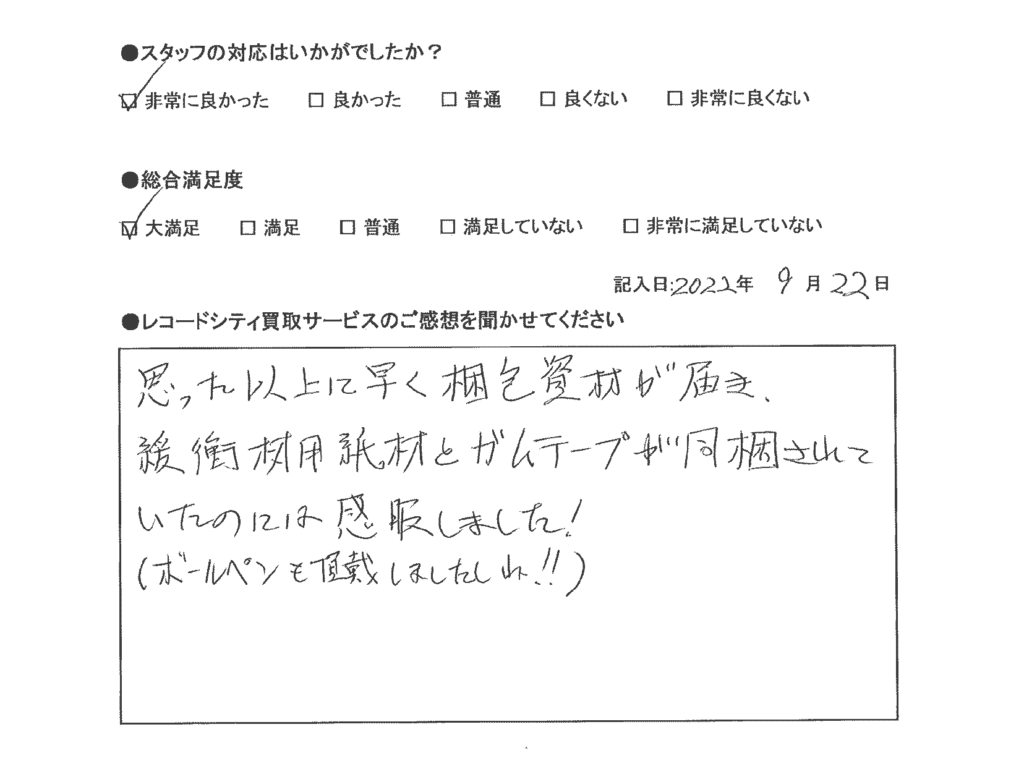 ●スタッフの対応はいかがでしたか？
☑ 非常に良かった □ 良かった □ 普通 □ 良くない □ 非常に良くない
●総合満足度
☑ 大満足 □ 満足 □ 普通 □ 満足していない □ 非常に満足していない
記入日:2022年 9月22日
●レコードシティ買取サービスのご感想を聞かせてください
思った以上に早く梱包資材が届き、
緩衝材用紙材とガムテープが同梱されて
いたのには感服しました!
(ボールペンも頂戴しましたしね!!)